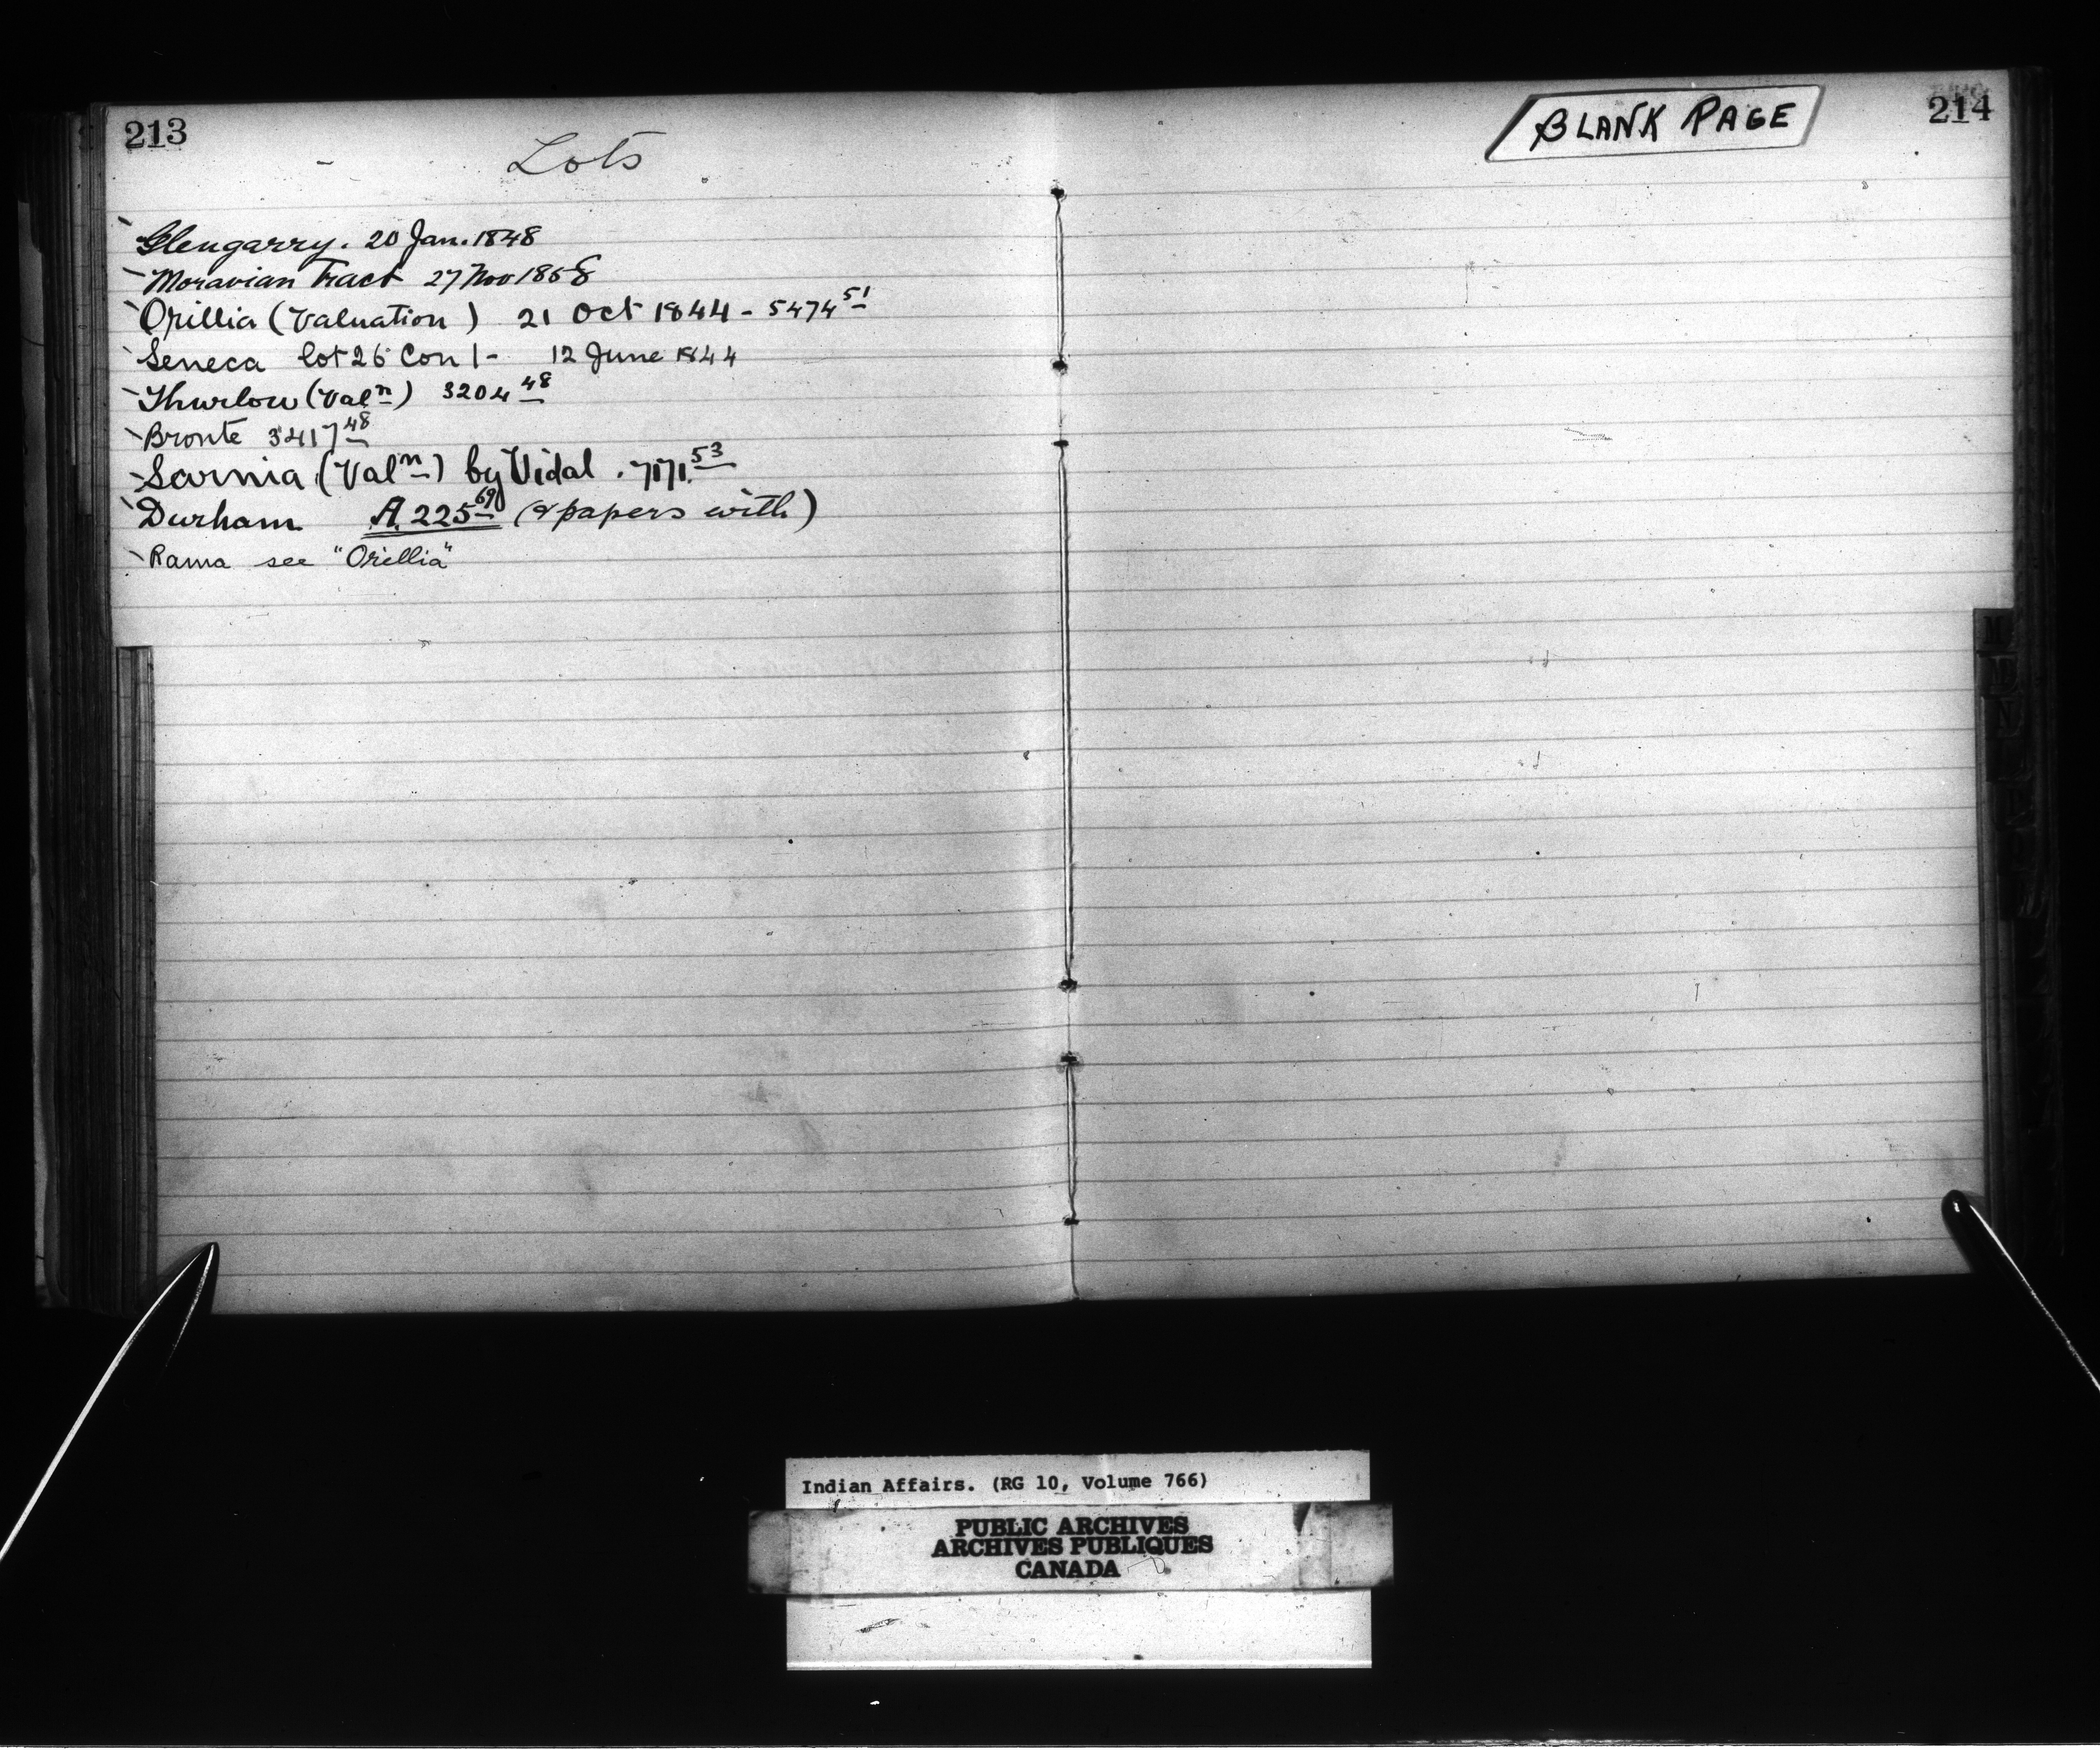 213
Lots
Glengarry. 20 Jan. 1848
Moravian Tract 27 Nov 1858
Orillia (Valuation) 21 Oct 1844 - 5474 51
Seneca lot 26 Con 1 - 12 June 1844
Thurlow (Valn) 3204 48
Bronte 3417 48
Sarnia (Valn) by Vidal . 7171. 53
Durham A. 225 69 (& papers with)
Rama see "Orillia"
BLANK PAGE
214
Indian Affairs. (RG 10, Volume 766)
PUBLIC ARCHIVES
ARCHIVES PUBLIQUES
CANADA